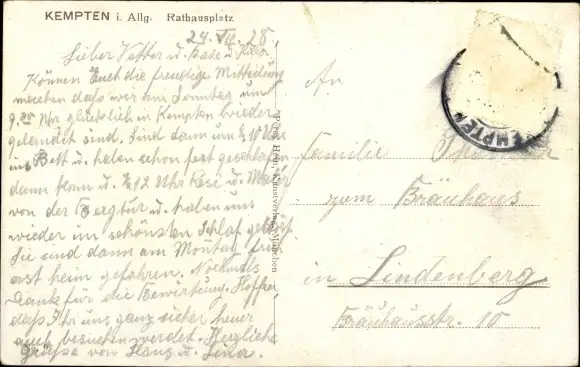 KEMPTEN i. Allg. Rathausplatz
24. VII. 28
Lieber Vetter u. Base u.
Können Euch die freudige Mitteilung
machen daß wir am Sonntag um
9.20 Uhr glücklich in Kempten wieder
gelandet sind. Sind dann um ½10 Uhr
ins Bett u. haben schon fest geschlafen
dann kam u. ½12 Uhr Rosé u.
von der Bergtur u. haben uns
wieder im schönsten Schlaf gestört.
Sie sind dann am Montag früh
erst heim gefahren. Nochmals
Danke für die Bewirtung. Hoffen
daß Ihr uns ganz sicher heuer
auch besuchen werdet. Herzliche
Grüße von Hans u. Lina.
Kunstverlag, München
KEMPTEN
An
Familie
zum Bräuhaus
in Lindenberg
Bräuhausstr. 10